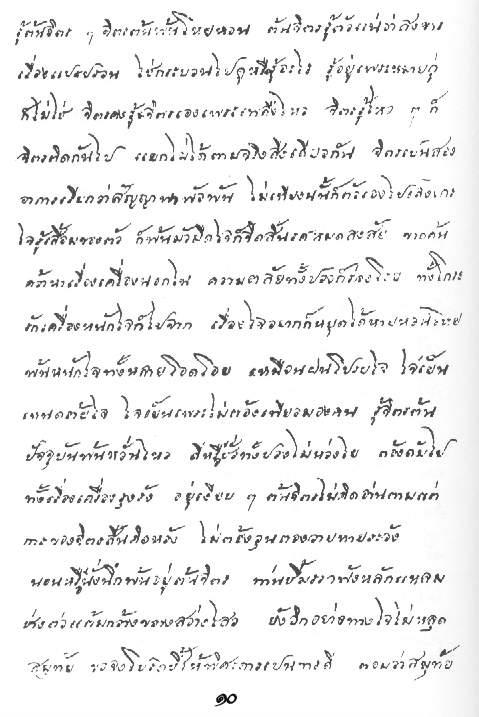 รู้ต้นจิตร ๆ จิตรต้นพ้นโหยหวน ต้นจิตรรู้ตัวแน่ว่าสังขาร
เรื่องแปรปรวน ใช่กระบวนไปดูหรือรู้อะไร รู้อยู่เพราะหมายคู่
ก็ไม่ใช่ จิตรคงรู้จิตรเองเพราะเพลงไหว จิตรรู้ไหว ๆ ก็
จิตรติดกันไป แยกไม่ได้ตามจริงสิ่งเดียวกัน จิตรเปนสอง
อาการเรียกว่าสัญญาพาพัวพัน ไม่เที่ยงนั้นก็ตัวเองไปเล็งใคร
ใจรู้เสื่อมของตัว ก็พ้นมัวมืดใจก็จืดสิ้นรศหมดสงสัย ขาดค้น
คว้าหาเรื่องเครื่องนอกใน ความอาลัยทั้งปวงก็ร่วงโรย ทั้งโกรธ
รักเครื่องหนักใจก็ไปจาก เรื่องใจอยากก็หยุดได้หายหวนโหย
พ้นหนักใจทั้งหลายโอดโอย เหมือนฝนโปรยใจ ใจเย็น
เหนด้วยใจ ใจเย็นเพราะไม่ต้องเที่ยวมองคน รู้จิตรต้น
ปัจจุบันพ้นหวั่นไหว ดีหรือชั่วทั้งปวงไม่ห่วงใย ต้องดับไป
ทั้งเรื่องเครื่องรุงรัง อยู่เงียบ ๆ ต้นจิตรไม่คิดอ่านตามแต่
การของจิตรสิ้นคิดหวัง ไม่ต้องวุ่นต้องวายหายระวัง
นอนหรือนั่งนึกพ้นอยู่ต้นจิตร ท่านชี้มรรคฟังหลักแหลม
ช่างต่อแต้มกว้างขวางสว่างไสว ยังอีกอย่างทางใจไม่หลุด
สมุทัย ขอจงโปรดชี้ให้พิศดารเปนการดี ตอบว่าสมุทัย
๑๐